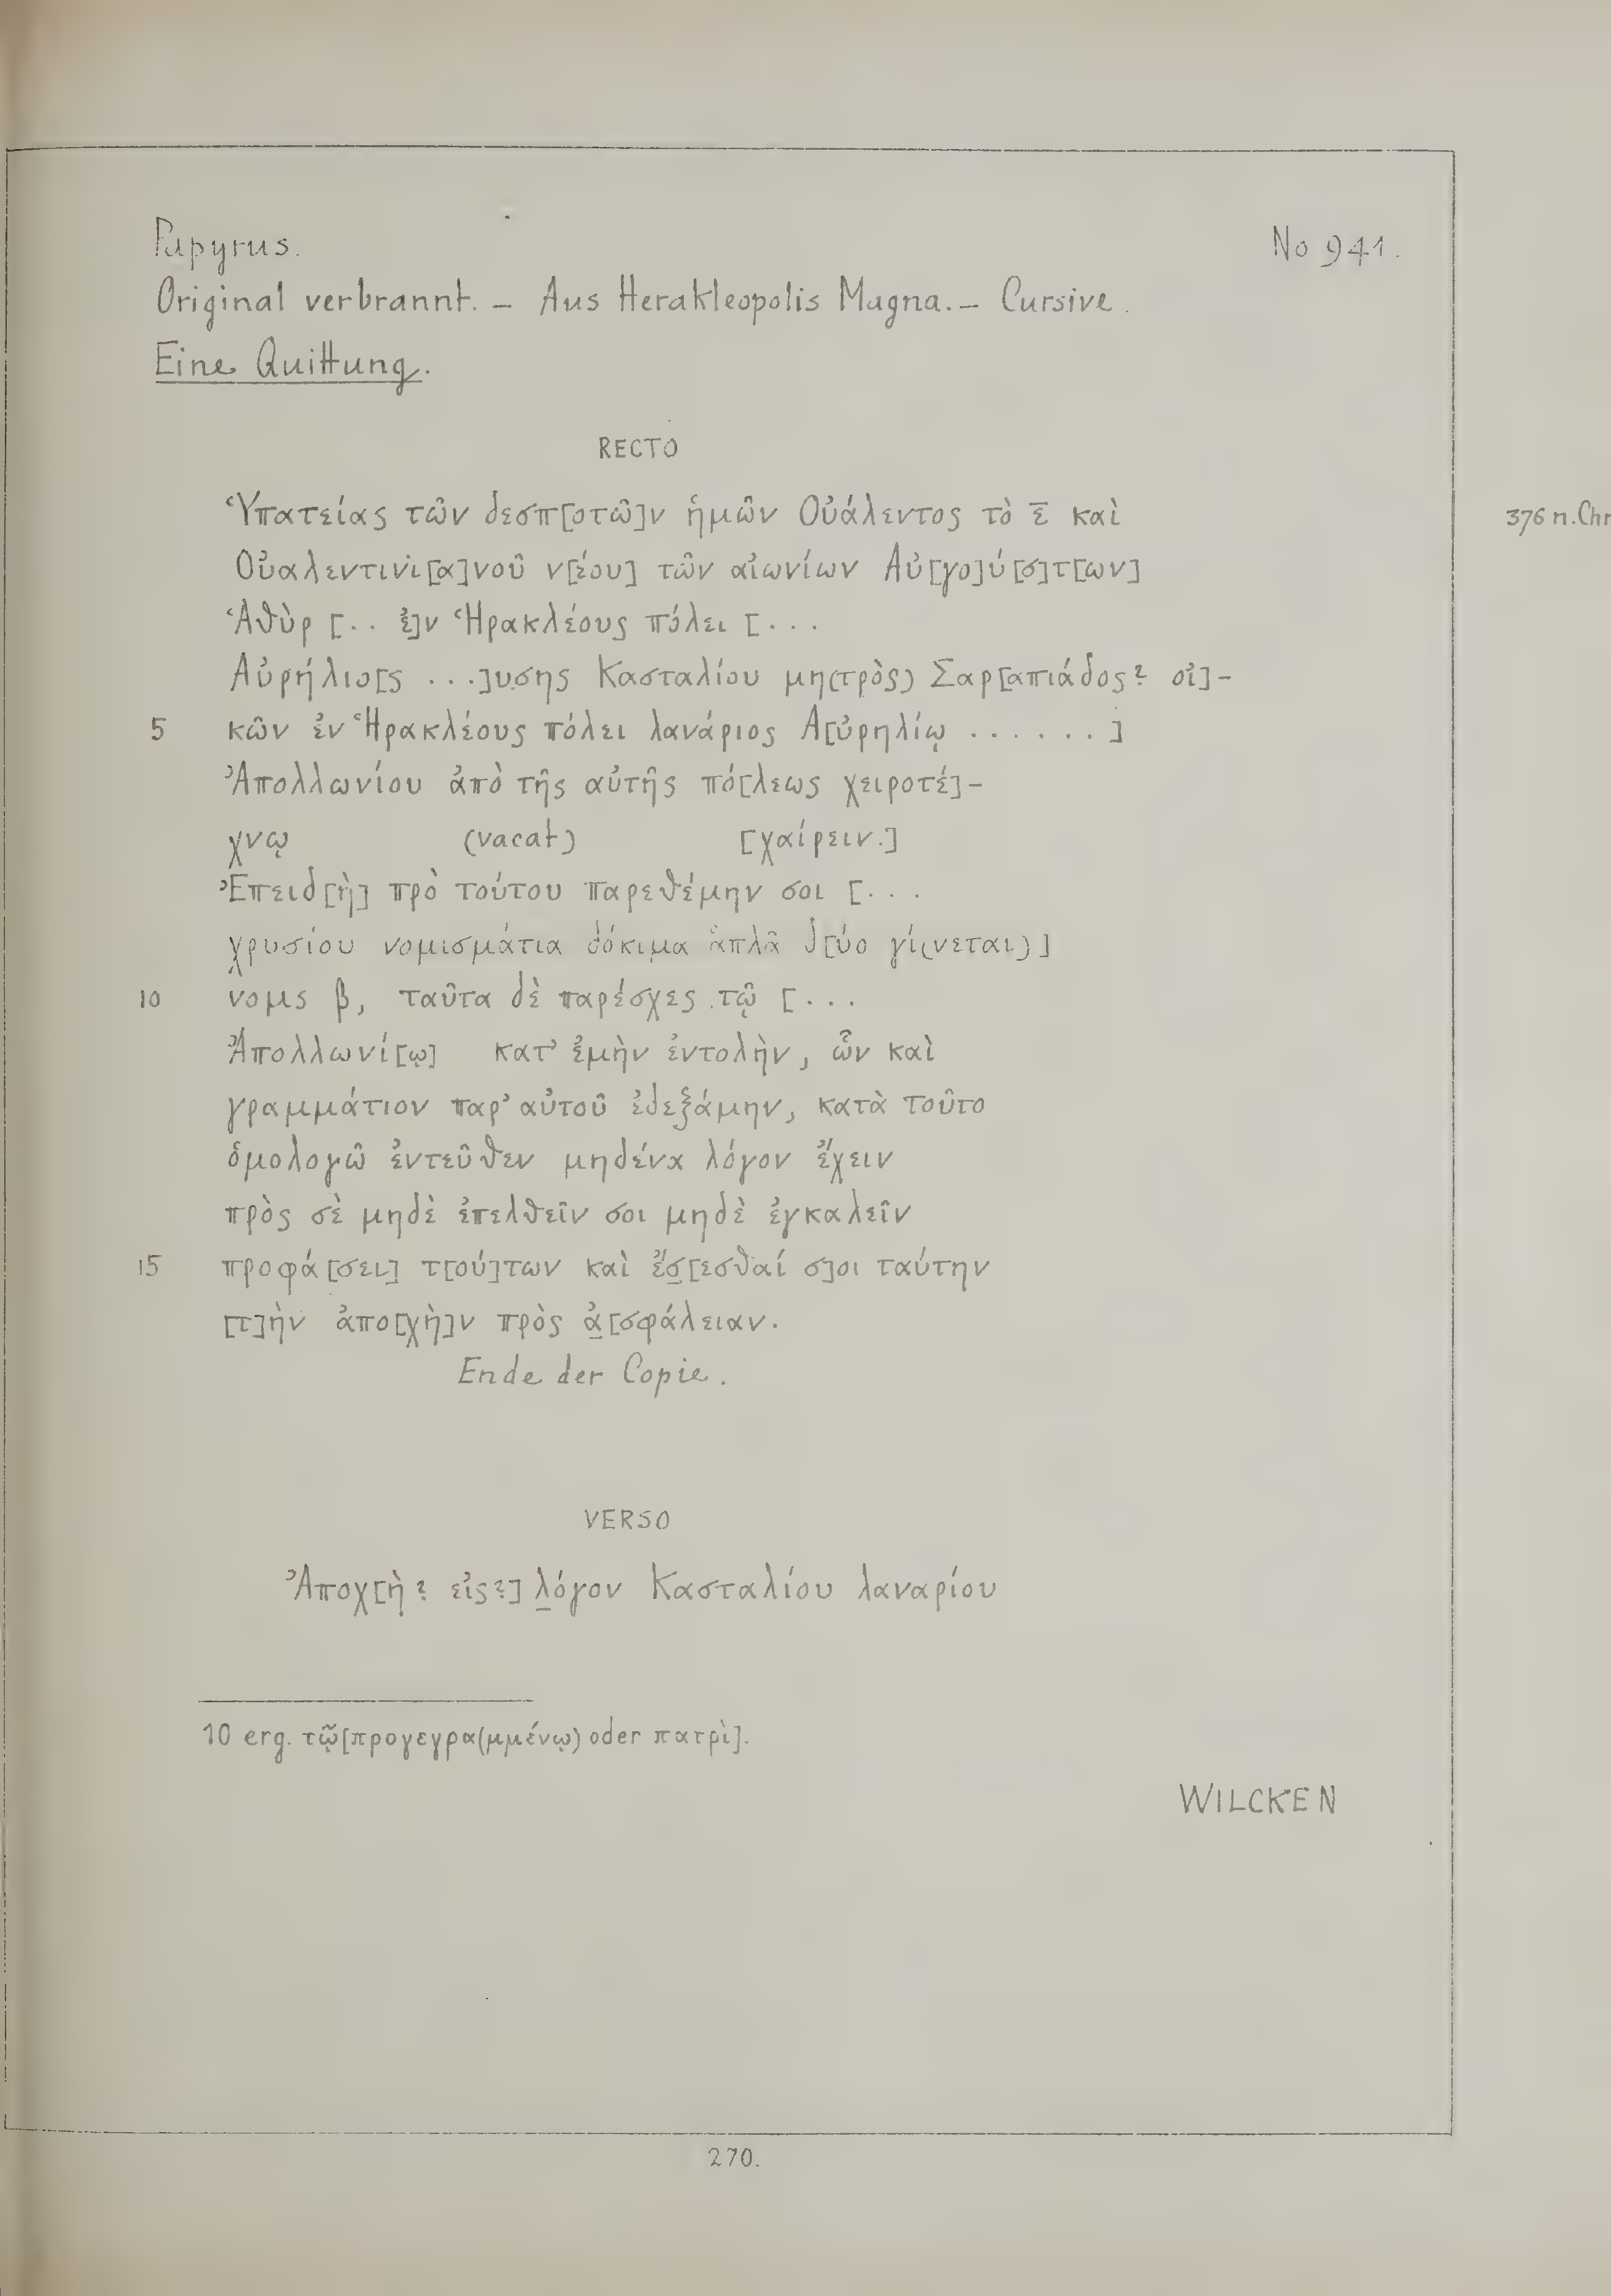 Papyrus. No 941.
Original verbrannt. – Aus Herakleopolis Magna. – Cursive.
Eine Quittung.
RECTO
Ὑπατείας τῶν δεσπ[οτῶ]ν ἡμῶν Οὐάλεντος τὸ ε̅ καὶ 376 n. Chr
Οὐαλεντινι[α]νοῦ ν[έου] τῶν αἰωνίων Αὐ[γο]ύ[σ]τ[ων]
Ἁθὺρ [·· ἐ]ν Ἡρακλέους πόλει [···
Αὐρήλιο[ς ···]υσης Κασταλίου μη(τρὸς) Σαρ[απιάδος? οἰ]-
5 κῶν ἐν Ἡρακλέους πόλει λανάριος Α[ὐρηλίῳ ······]
Ἀπολλωνίου ἀπὸ τῆς αὐτῆς πό[λεως χειροτέ]-
χνῳ (vacat) [χαίρειν.]
Ἐπειδ[ὴ] πρὸ τούτου παρεθέμην σοι [···
χρυσίου νομισμάτια δόκιμα ἁπλᾶ δ[ύο γί(νεται)]
10 νομς β, ταῦτα δὲ παρέσχες τῷ [···
Ἀπολλωνί[ῳ] κατ' ἐμὴν ἐντολὴν, ὧν καὶ
γραμμάτιον παρ' αὐτοῦ ἐδεξάμην, κατὰ τοῦτο
ὁμολογῶ ἐντεῦθεν μηδένα λόγον ἔχειν
πρὸς σὲ μηδὲ ἐπελθεῖν σοι μηδὲ ἐγκαλεῖν
15 προφά[σει] τ[ού]των καὶ ἔσ̲[εσθαί σ]οι ταύτην
[τ]ὴν ἀπο[χὴ]ν πρὸς ἀ̲[σφάλειαν.
Ende der Copie.
VERSO
Ἀποχ[ὴ? εἰς?] λ̲όγον Κασταλίου λαναρίου
10 erg. τῷ[προγεγρα(μμένῳ) oder πατρὶ].
WILCKEN
270.